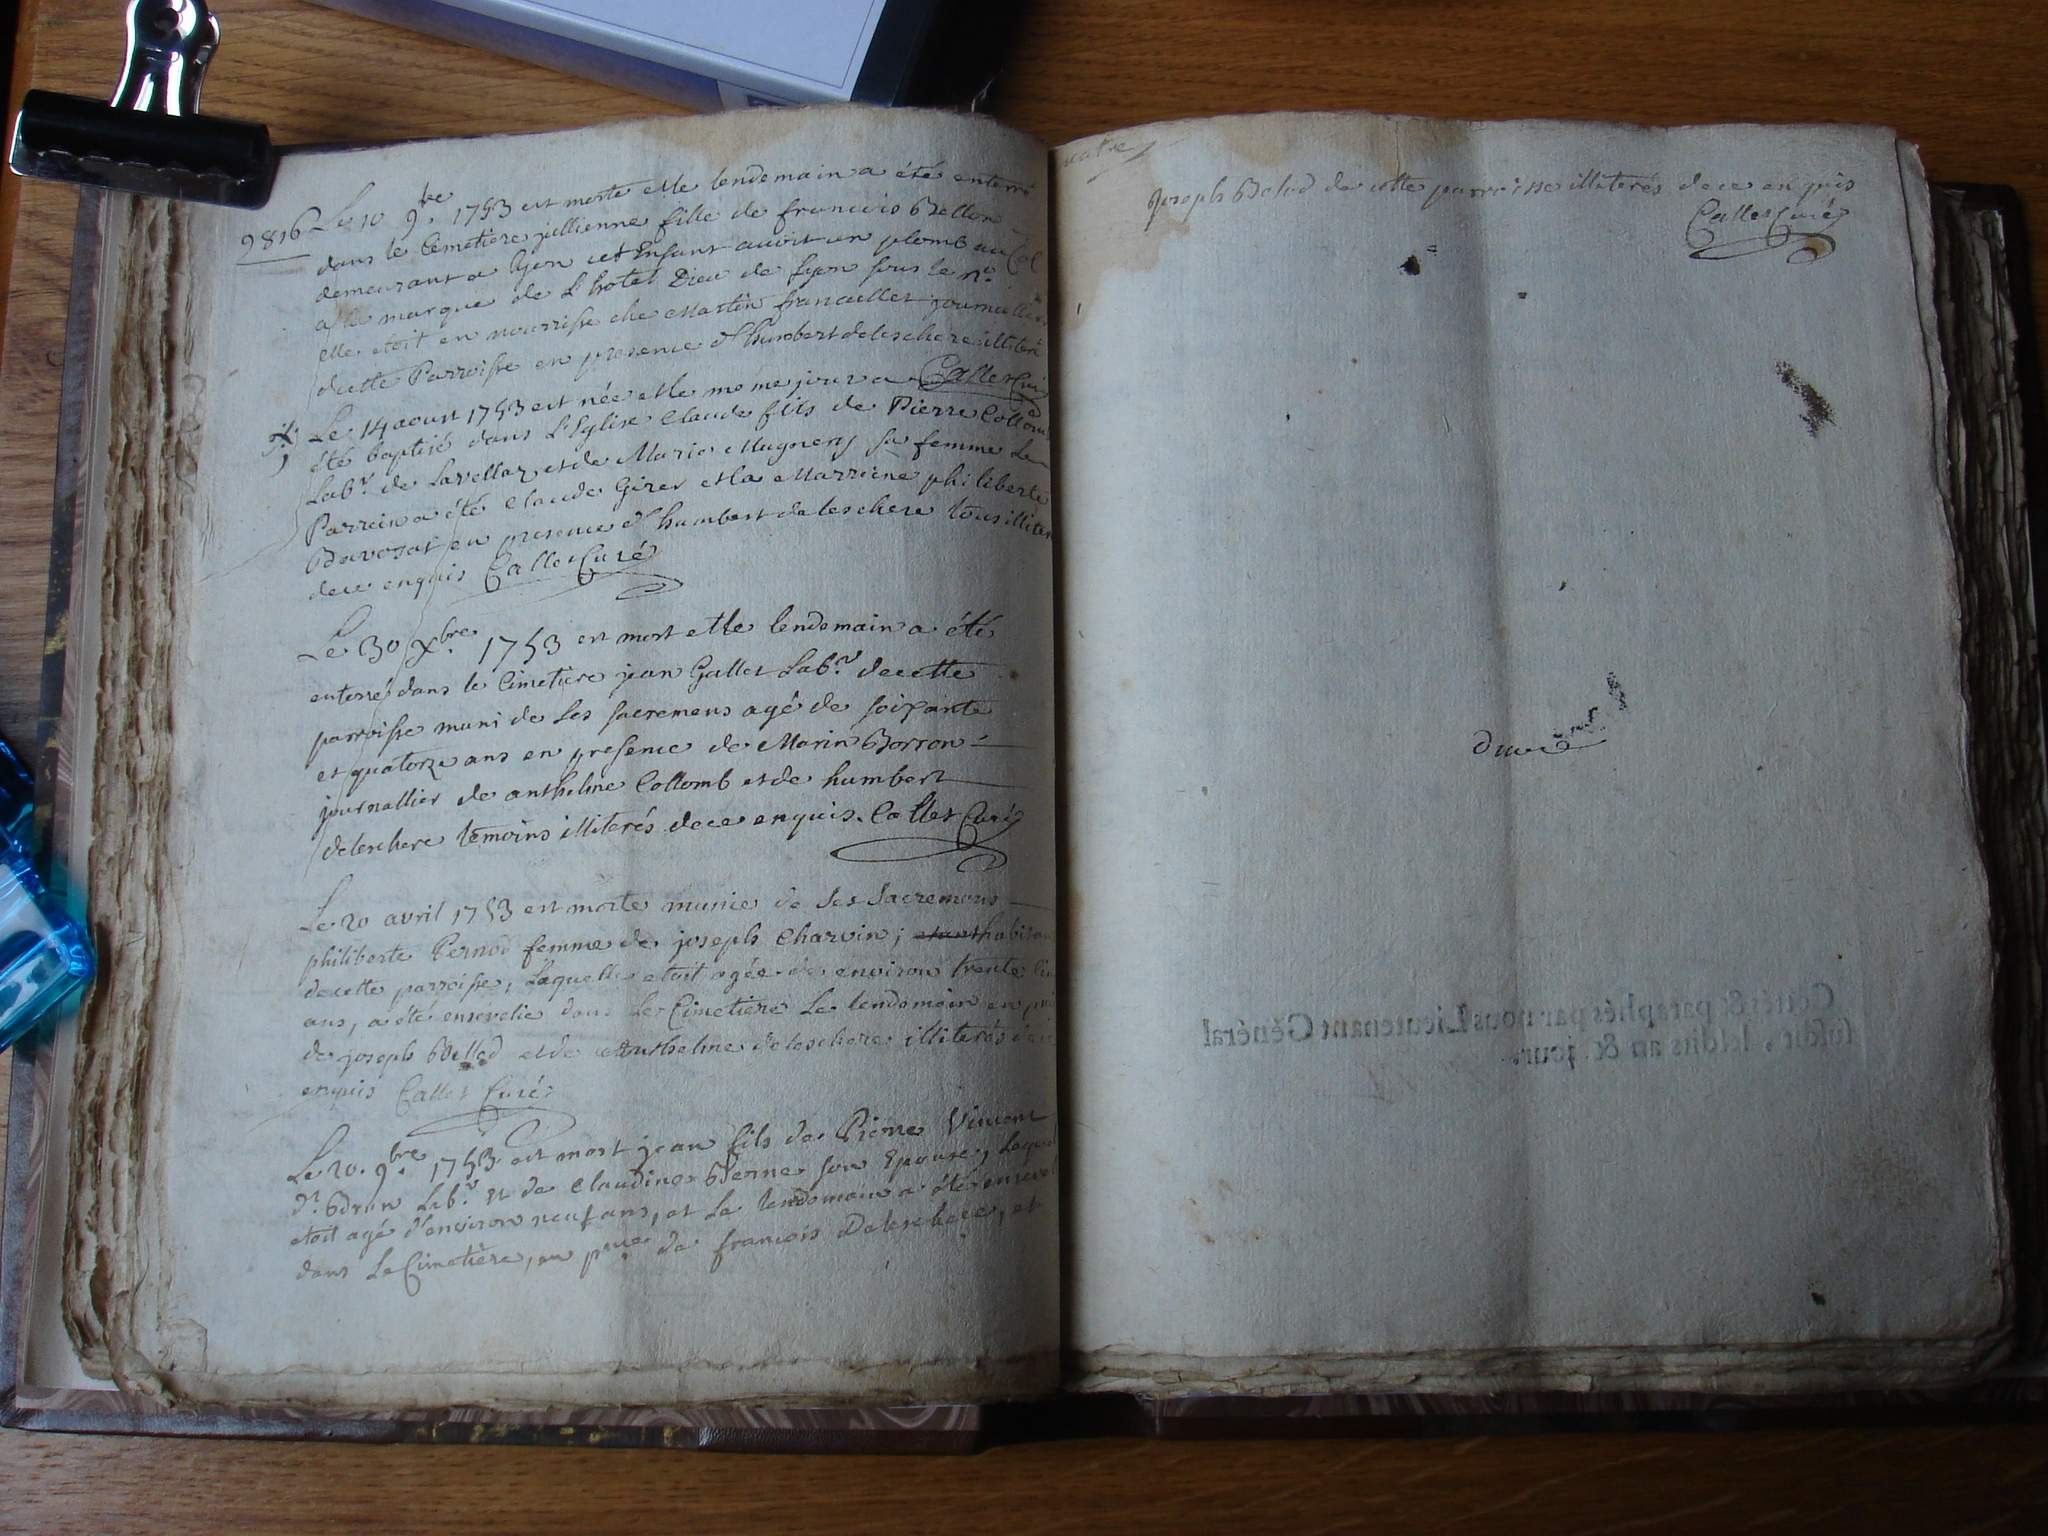 9816 Le 10 9bre. 1753 est morte et le lendemain a été enterré
dans le Cemetière jullienne fille de francois Bellon
demeurant a lyon cet Enfant avoit un plomb au Col
a la marque de L'hotel Dieu de lyon sous le n.o
elle etoit en nourrisse che Martin francillet journallier
de cette Parroisse en presence d'humbert deleschere illiteré
Callet Curé
Le 14 aoust 1753 est née et le meme jour a
été baptisé dans L'Eglise Claude fils de Pierre Collomb
Labr. de Lavellaz et de Marie Mugnery sa femme Le
Parrein a été Claude Girer et la Marreine philiberte
Bavozat en presence d'humbert deleschere tous illiter
de ce enquis Callet Curé
Le 30 Xbre. 1753 est mort et le lendemain a été
enterré dans le Cimetiere jean Gallet Labr. de cette
parroisse muni de ses sacremens agé de soixante
et quatorze ans en presence de Marin Borron
journallier de anthelme Collomb et de humbert
deleschere temoins illiterés de ce enquis. Callet Curé
Le 20 avril 1753 est morte munie de ses sacremens
philiberte Pernod femme de joseph Charvin; habitant
de cette parroisse, Laquelle etoit agée de environ trente
ans, a été ensevelie dans Le Cimetière Le lendemain en
de joseph Bellod et de Anthelme deleschere illiterés
enquis Callet Curé
Le 20. 9bre. 1753 est mort jean fils de Pierre Vincent
dt. Labr. et de Claudine Berne son Epouse, Lequel
etoit agé d'environ neuf ans, et Le lendemain a été ensevel
dans Le Cimetière, en pnce de francois Deleschere, et
Joseph Belod de cette parroisse illiterés de ce enquis
Callet Curé
Cottés & paraphés par nous Lieutenant Général
susdit, lesdits an & jour.